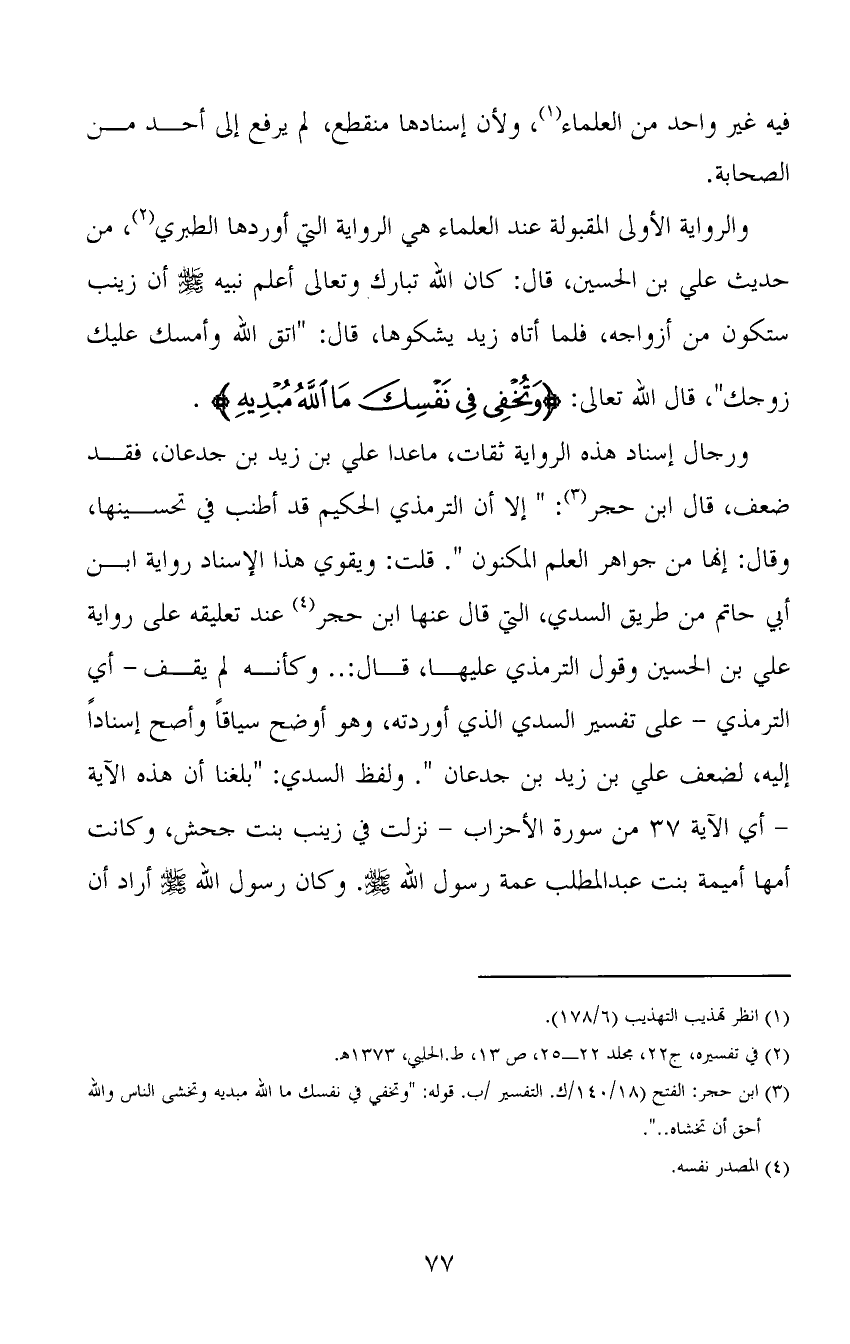 فيه غير واحد من العلماء(١)، ولأن إسنادها منقطع، لم يرفع إلى أحـــد مــن
الصحابة.
والرواية الأولى المقبولة عند العلماء هي الرواية التي أوردها الطبري(٢)، من
حديث علي بن الحسين، قال: كان الله تبارك وتعالى أعلم نبيه ﷺ أن زينب
ستكون من أزواجه، فلما أتاه زيد يشكوها، قال: "اتق الله وأمسك عليك
زوجك"، قال الله تعالى: ﴿وَتُخْفِي فِي نَفْسِكَ مَا ٱللَّهُ مُبْدِيهِ﴾ .
ورجال إسناد هذه الرواية ثقات، ماعدا علي بن زيد بن جدعان، فقــد
ضعف، قال ابن حجر(٣): " إلا أن الترمذي الحكيم قد أطنب في تحســينها،
وقال: إنها من جواهر العلم المكنون ". قلت: ويقوي هذا الإسناد رواية ابــن
أبي حاتم من طريق السدي، التي قال عنها ابن حجر(٤) عند تعليقه على رواية
علي بن الحسين وقول الترمذي عليهــا، قــال:.. وكأنــه لم يقــف – أي
الترمذي – على تفسير السدي الذي أوردته، وهو أوضح سياقاً وأصح إسناداً
إليه، لضعف علي بن زيد بن جدعان ". ولفظ السدي: "بلغنا أن هذه الآية
– أي الآية ٣٧ من سورة الأحزاب – نزلت في زينب بنت جحش، وكانت
أمها أميمة بنت عبدالمطلب عمة رسول الله ﷺ. وكان رسول الله ﷺ أراد أن
(١) انظر تهذيب التهذيب (١٧٨/٦).
(٢) في تفسيره، ج٢٢، مجلد ٢٢ــ٢٥، ص ١٣، ط.الحلبي، ١٣٧٣هـ.
(٣) ابن حجر: الفتح (١٤٠/١٨/ك. التفسير /ب. قوله: "وتخفي في نفسك ما الله مبديه وتخشى الناس والله
أحق أن تخشاه..".
(٤) المصدر نفسه.
٧٧